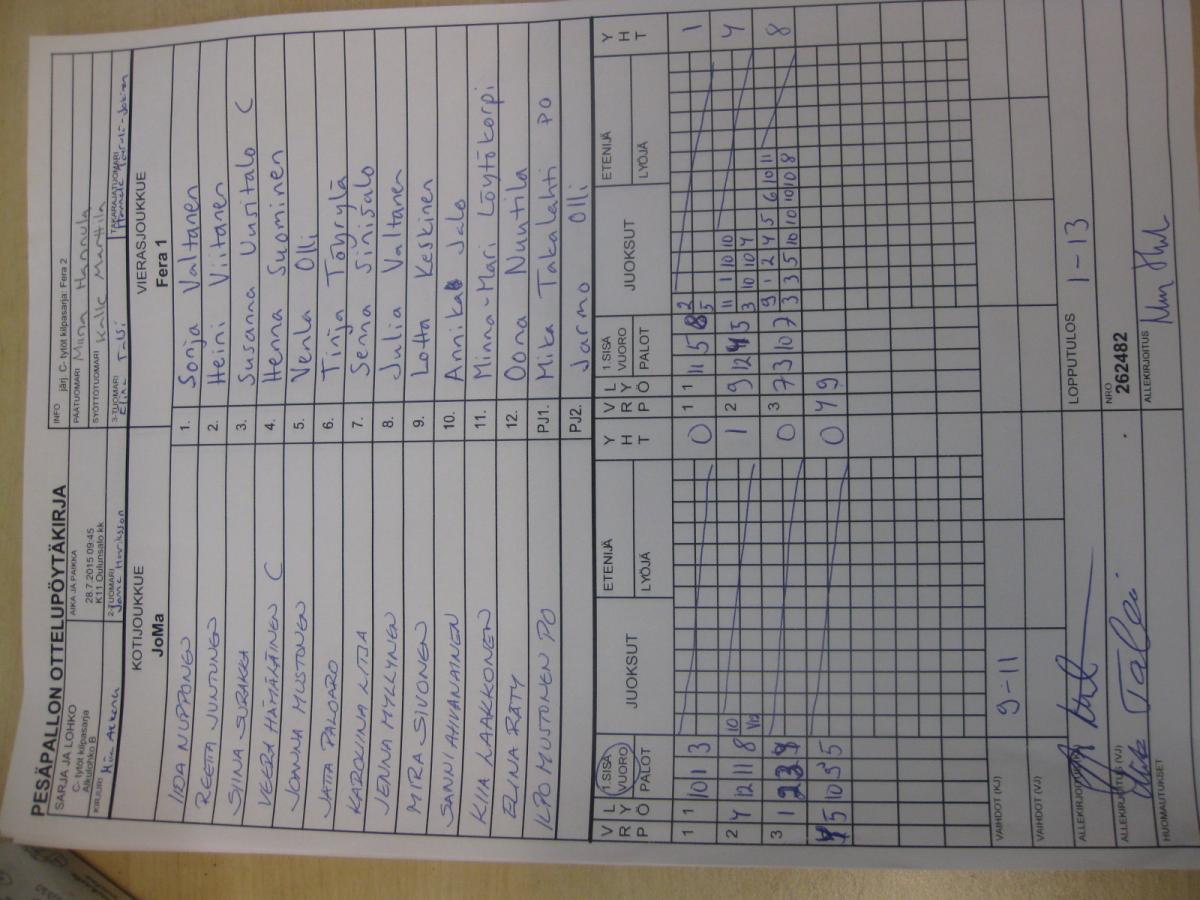 PESÄPALLON OTTELUPÖYTÄKIRJA
SARJA JA LOHKO
C- tytöt kilpasarja
Alkulohko B
AIKA JA PAIKKA
28.7.2015 09:45
K11 Oulunsalo kk
INFO järj. C- tytöt kilpasarja: Fera 2
PÄÄTUOMARI Minna Hannula
SYÖTTÖTUOMARI Kalle Marttila
KIRJURI
2-TUOMARI
3-TUOMARI
TAKARAJATUOMARI
KOTIJOUKKUE
JoMa
VIERASJOUKKUE
Fera 1
IIDA NUPPONEN 1. Sonja Valtanen
REETTA JUNTUNEN 2. Heini Viitanen
SIINA SURAKKA 3. Susanna Uusitalo C
VEERA HÄMÄLÄINEN C 4. Henna Suominen
JOANNA MUSTONEN 5. Venla Olli
JATTA PALOARO 6. Tinja Töyrylä
KAROLIINA LITJA 7. Senna Sinisalo
JENNA MYLLYNEN 8. Julia Valtanen
MIRA SIVONEN 9. Lotta Keskinen
SANNI AHVANAINEN 10. Annika Jalo
KIIA LAAKKONEN 11. Minna-Mari Löytökorpi
ELINA RÄTY 12. Oona Nuutila
ILPO MUSTONEN PO PJ1. Mika Takalahti PO
PJ2. Jarmo Olli
V R P L Y Ö 1.SISÄ VUORO PALOT JUOKSUT ETENIJÄ LYÖJÄ Y H T
V R P L Y Ö 1.SISÄ VUORO PALOT JUOKSUT ETENIJÄ LYÖJÄ Y H T
1 1 10 1 3 0
1 1 11 5 8 2 5 1
2 4 12 11 8 10 1
2 9 11 1 10 10 3 10 10 4 4
3 1 0
3 7 3 10 7 9 1 2 4 5 6 10 11 3 3 5 10 10 10 10 8 8
5 10 3 5 0
4 9
VAIHDOT (KJ) 9-11
VAIHDOT (VJ)
ALLEKIRJOITUS (KJ)
LOPPUTULOS 1-13
ALLEKIRJOITUS (VJ)
NRO
262482
HUOMAUTUKSET
ALLEKIRJOITUS